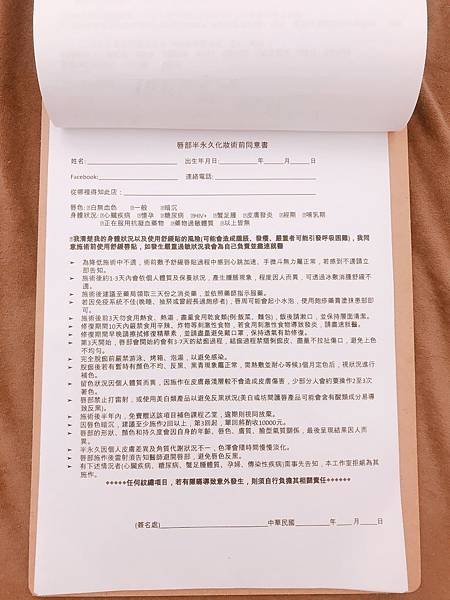 唇部半永久化妝術前同意書
姓名: 出生年月日: 年 月 日
Facebook: 連絡電話:
從哪裡得知此店:
唇色:☐白無血色 ☐一般 ☐暗沉
身體狀況:☐心臟疾病 ☐懷孕 ☐糖尿病 ☐HIV+ ☐蟹足腫 ☐皮膚發炎 ☐經期 ☐哺乳期
☐正在服用抗凝血藥物 ☐藥物過敏體質 ☐以上皆無
☐我清楚我的身體狀況以及使用舒緩貼的風險(可能會造成腫脹、發癢、嚴重者可能引發呼吸困難),我同
意施術前使用舒緩膏貼,如發生嚴重過敏狀況我會為自己負責並盡速就醫
➢ 為降低施術中不適,術前敷予舒緩唇貼過程中感到心跳加速、手微斗無力屬正常,若感到不適請立
即告知。
➢ 施術後約1-3天內會依個人體質及保養狀況,產生腫脹現象,程度因人而異,可透過冰敷消腫舒緩不
適。
➢ 施術後建議至藥局領取三天份之消炎藥,並依照藥師指示服藥。
➢ 若因免疫系統不佳(熬睡、抽菸或嘗經長過皰疹者),唇周可能會起小水泡,使用皰疹藥膏塗抹患部即
可。
➢ 施術後前3天勿食用熱食、熱湯,盡量食用乾食類(例:飯菜、麵包),飯後請漱口,並保持唇面清潔。
➢ 修復期間10天內嚴禁食用辛辣、炸物等刺激性食物,若食用刺激性食物導致發炎,請盡速就醫。
➢ 修復期間早晚請擦拭修復精華素,並請盡量避免戴口罩,保持透氣有助修復。
➢ 第3天開始,唇部會開始約會有3-7天的結痂過程,結痂過程禁摳剝痂皮、盡量不拉扯傷口,避免上色
不均勻。
➢ 完全脫痂前嚴禁游泳、烤箱、泡溫,以避免感染。
➢ 脫痂後若有暫時有顏色不均、反黑、黑青現象屬正常,需熱敷並耐心等候3個月定色后,視狀況進行
補色。
➢ 留色狀況因個人體質而異,因施作在皮膚最淺層較不會造成皮膚傷害,少部分人會約要操作2至3次
著色。
➢ 唇部禁止打雷射,或使用美白類產品以避免反黑狀況(美白或坊間護唇產品可能會含有酸類或分易導
致反黑)。
➢ 施術後半年內,免費贈送該項目補色課程乙堂,逾期則視同放棄。
➢ 因唇色暗沉,建議至少施作2回以上,第3回起,單回將酌收10000元。
➢ 唇部的形狀、顏色和持久度會因自身的年齡、唇色、膚質、臉型氣質關係,最後呈現結果因人而
異。
➢ 半永久因個人皮膚差異及角質代謝狀況不一,色澤會隨時間慢慢淡化。
➢ 唇部施作後需射須告知醫師避開唇部,避免唇色反黑。
➢ 有下述情況者(心臟疾病、糖尿病、蟹足腫體質、孕婦、傳染性疾病)需事先告知,本工作室拒絕為其
施作。
◆◆◆◆◆任何紋繡項目,若有隱瞞導致意外發生,則須自行負擔其相關責任◆◆◆◆◆◆
(簽名處) 中華民國 年 月 日